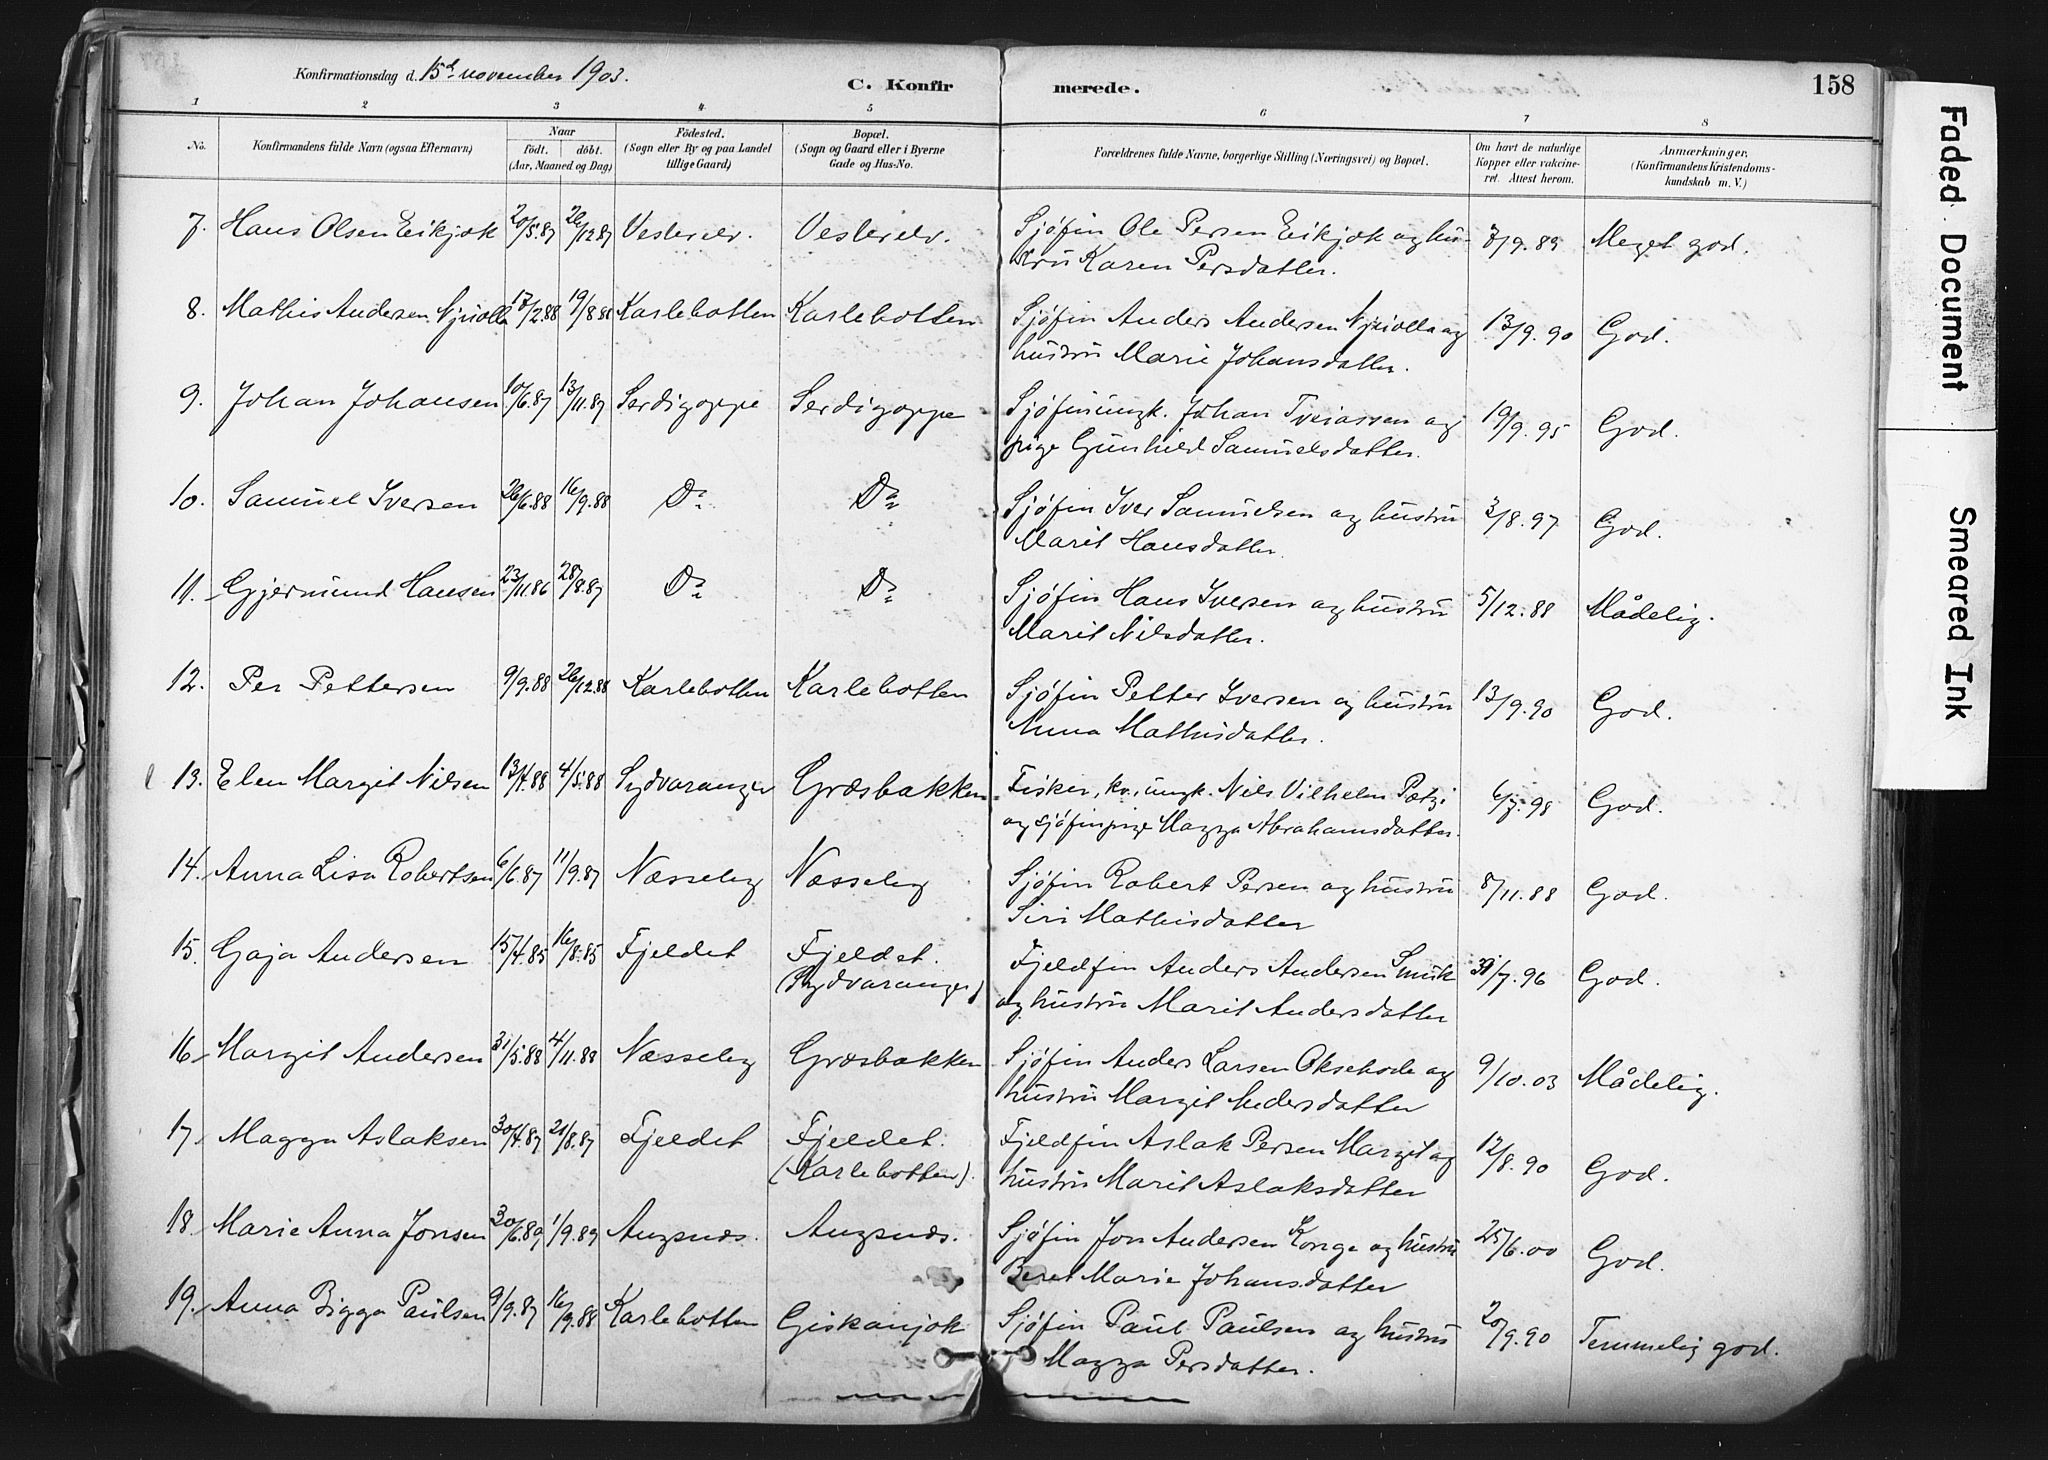 Konfirmationsdag d. 15d november 1903.
C. Konfir merede.
158
1 2 3 4 5 6 7 8
No.
Konfirmandens fulde Navn (ogsaa Efternavn)
Naar
Födt. döbt.
(Aar, Maaned og Dag)
Födested.
(Sogn eller By og paa Landet
tillige Gaard)
Bopæl.
(Sogn og Gaard eller i Byerne
Gade og Hus-No.
Forældrenes fulde Navne, borgerlige Stilling (Næringsvei) og Bopæl.
Om havt de naturlige
Kopper eller vakcine-
ret. Attest herom.
Anmærkninger.
(Konfirmandens Kristendoms-
kundskab m. V.)
7. Hans Olsen Eikjok 20/5.87 26/12.87 Vesterelv. Vesterelv. Sjøfin Ole Persen Eikjok og hu- 7/9.89 Meget god.
stru Karen Persdatter.
8. Mathis Andersen Njuolla 17/2.88 19/8.88 Karlebotten Karlebotten Sjøfin Anders Andersen Njuolla og 13/9.90 God.
hustru Marie Johansdatter.
9. Johan Johansen 10/6.87 13/11.87 Serdigoppe Serdigoppe Sjøfinungk. Johan og 19/9.95 God.
pige Gunhild Samuelsdatter.
10. Samuel Iversen 26/6.88 16/9.88 Do Do Sjøfin Iver Samuelsen og hustru 3/8.97 God.
Marit Hansdatter.
11. Gjermund Hansen 23/11.86 28/8.87 Do Do Sjøfin Hans Iversen og hustru 5/12.88 Mådelig.
Marit Nilsdatter.
12. Per Pettersen 9/9.88 26/12.88 Karlebotten Karlebotten Sjøfin Petter Iversen og hustru 13/9.90 God.
Anna Mathisdatter.
13. Elen Margit Nilsen 13/4.88 4/5.88 Sydvaranger Græsbakken Fisker, kv., ungk. Nils Vilhelm 6/7.98 God.
og sjøfinpige Magga Abrahamsdatter.
14. Anna Lisa Robertsen 6/6.87 11/9.87 Næsseby Næsseby Sjøfin Robert Persen og hustru 8/11.88 God.
Siri Mathisdatter
15. Gaja Andersen 15/4.85 16/8.85 Fjeldet Fjeldet. Fjeldfin Anders Andersen Smuk 31/7.96 God.
(Sydvaranger) og hustru Marit Andersdatter
16. Margit Andersen 31/5.88 4/11.88 Næsseby Græsbakken Sjøfin Anders Larsen Oksehode og 9/10.03 Mådelig.
hustru Margit Andersdatter
17. Magga Aslaksen 30/4.87 21/8.87 Fjeldet Fjeldet. Fjeldfin Aslak Persen Margit og 12/8.90 God.
(Karlebotten). hustru Marit Aslaksdatter
18. Marie Anna Jonsen 30/6.89 1/9.89 Angsnæs. Angsnæs. Sjøfin Jon Andersen Konge og hustru 25/6.00 God.
Beret Marie Johansdatter
19. Anna Bigga Paulsen 9/9.87 16/9.88 Karlebotten Giskanjok Sjøfin Paul Paulsen og hustru 20/9.90 Temmelig god.
Magga Persdatter.
Faded Document
Smeared Ink